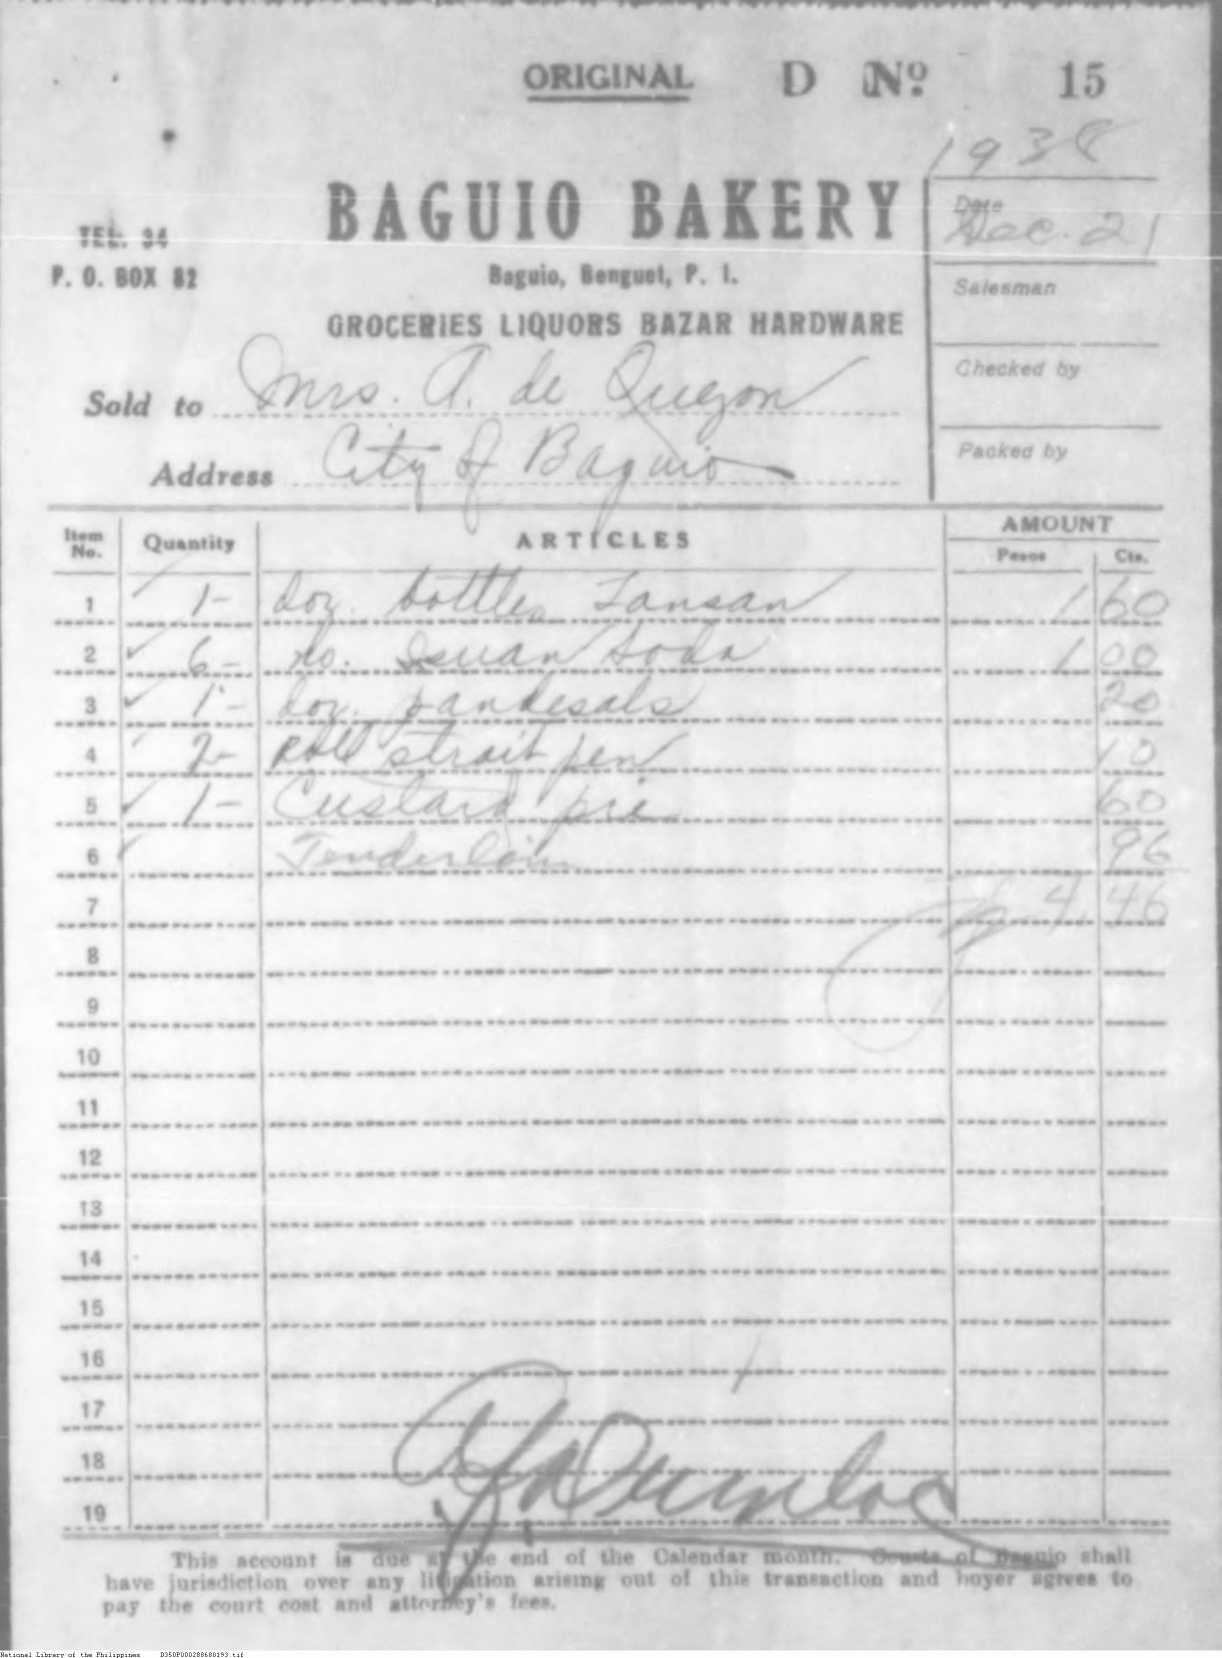 ORIGINAL D No. 15
1938
BAGUIO BAKERY
TEL. 34
P. O. BOX 82
Baguio, Benguet, P. I.
GROCERIES LIQUORS BAZAR HARDWARE
Date
Dec. 21
Salesman
Checked by
Packed by
Sold to Mrs. A. de Quezon
Address City of Baguio
Item No. Quantity ARTICLES AMOUNT Pesos Cts.
1 1- doz. bottles Tansan 1 60
2 6- no. Isuan Soda 1 00
3 1- doz. pandesals 20
4 2- roll strait pen 10
5 1- Custard pie 60
6 Tenderloin 96
7 4 46
8
9
10
11
12
13
14
15
16
17
18
19
This account is due at the end of the Calendar month. Courts of Baguio shall
have jurisdiction over any litigation arising out of this transaction and buyer agrees to
pay the court cost and attorney's fees.
National Library of the Philippines D350P000288680193.tif